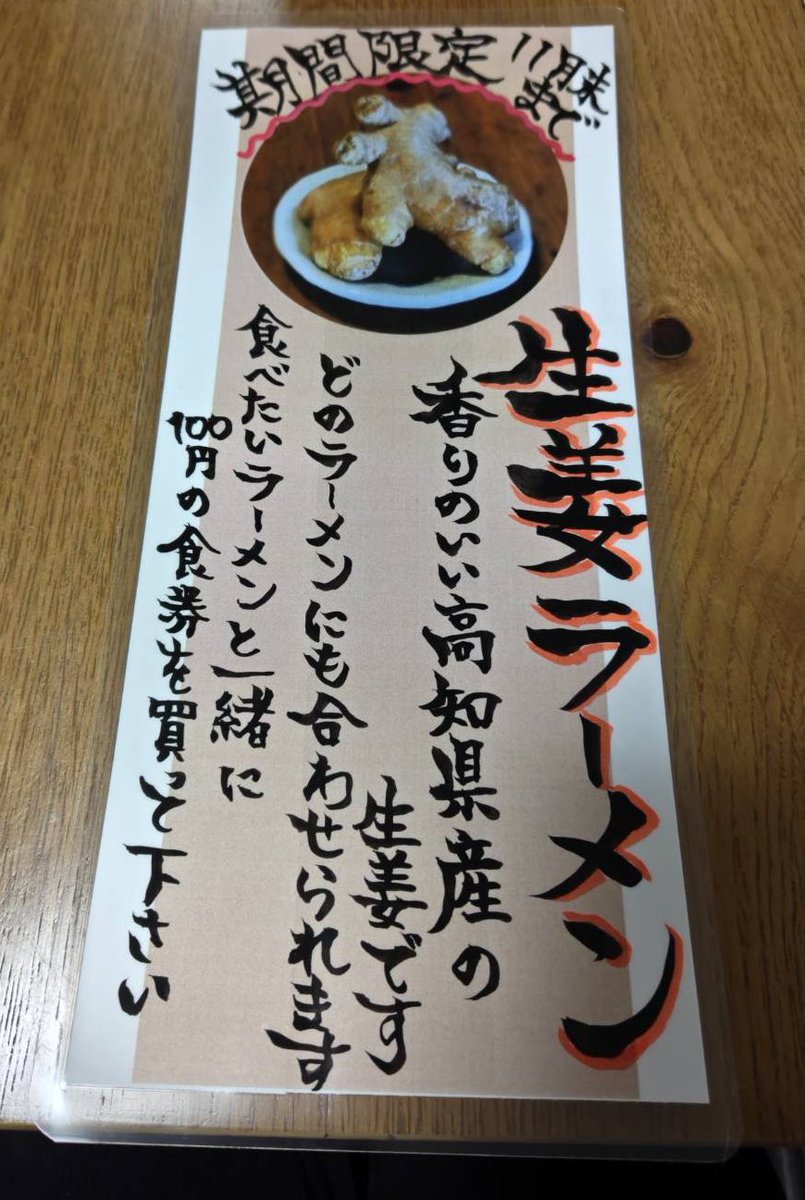 期間限定 11月末
まで
生姜ラーメン
香りのいい高知県産の
生姜です
どのラーメンにも合わせられます
食べたいラーメンと一緒に
100円の食券を買って下さい